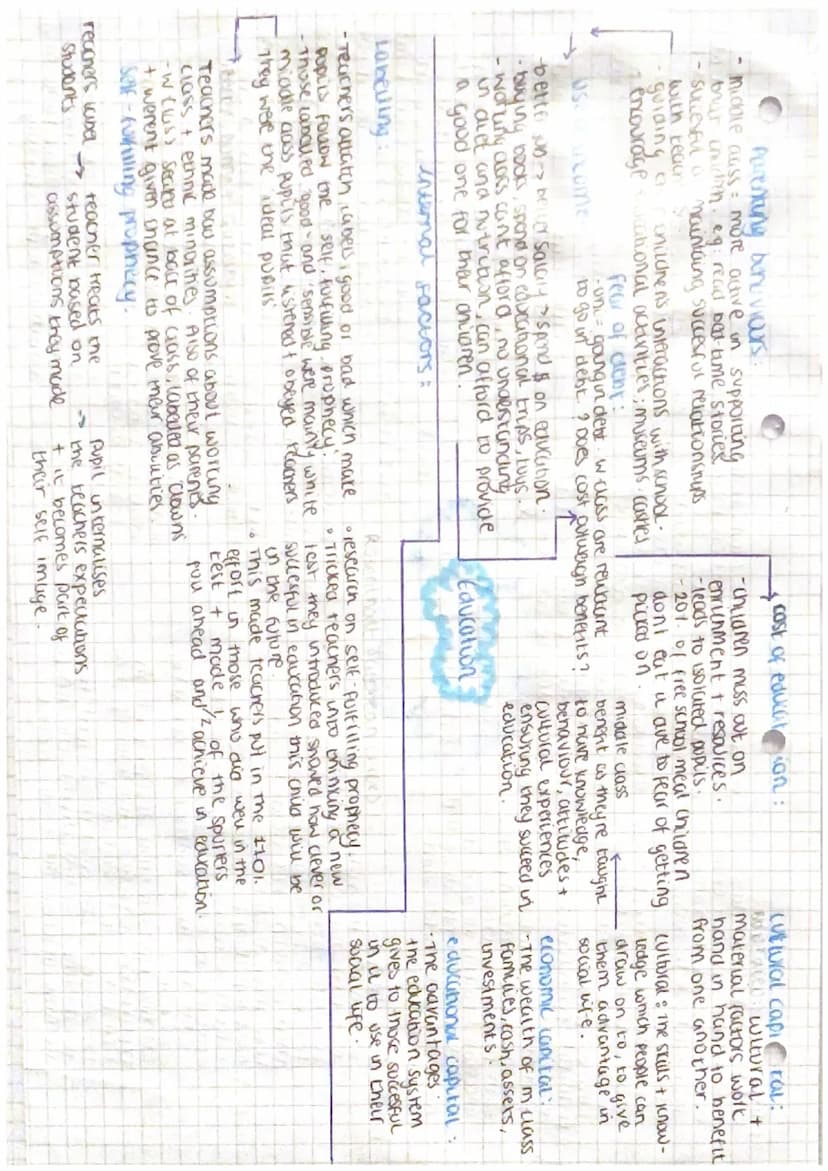 Parenting behaviours:
- middle class = more active in supporting
their children e.g: read bed time stories
- successful at maintaining successful relationships
with teachers
- guiding children's interactions with school.
encourage educational activities; museums
fear of debt:
- uni = going in debt. w class are reluctant
to go in debt? does cost outweigh benefits?
use income
better job -> better salary -> spend $ on education.
- buying books, spend on educational trips, toys.
- working class cant afford, no understanding
in diet and nutrition, can afford to provide
a good one for their children.
cost of education:
- children miss out on
enrichment + resources.
- leads to isolated pupils.
- 20% of free school meal children
don't eat it due to fear of getting
picked on.
middle class
benefit as they're taught
to have knowledge,
behaviour, attitudes +
cultural experiences
ensuring they succeed in
education.
cultural capital:
cultural +
material factors work
hand in hand to benefit
from one another.
cultural: the skills + know-
ledge which people can
draw on to, to give
them advantage in
social life.
economic capital:
- The wealth of m class
families, cash, assets,
investments.
educational capital:
- The advantages
the education system
gives to those succesful
in it to use in their
social life.
Education
internal factors:
Labelling:
- Teachers attach labels, good or bad which make
pupils follow the self-fulfilling prophecy.
- Those labelled 'good' and 'sensible' were mainly white
middle class pupils that listened + obeyed teachers
They were the ideal pupils
Teachers made bad assumptions about working
class + ethnic minorities. Also of their parents.
- w class seated at back of class, labelled as clowns
+ werent given chance to prove their abilities.
self-fulfilling prophecy:
teachers label -> teacher treats the -> pupil internalises
students student based on the teachers expectations
assumptions they made + it becomes part of
their self image.
• research on self-fulfilling prophecy.
• Tricked teachers into thinking a new
test they introduced showed how clever or
succesful in education this child will be
in the future.
• This made teachers put in the
effort in those who did well in the
test + made 1/2 of the spurters
you ahead and 1/2 achieve in education.